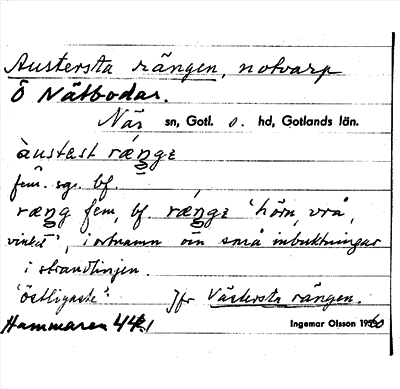 Austersta rängen, notvarp
Ö Nätbodar.
När sn, Gotl. s. hd, Gotlands län.
àustast ræŋgɛ
fem. sg. bf.
ræŋg fem, bf. ræŋgɛ 'hörn, vrå,
vinkel', i ortnamn om små inbuktningar
i strandlinjen.
'östligaste'. Jfr Västersta rängen.
Hammaren 44
Ingemar Olsson 1960